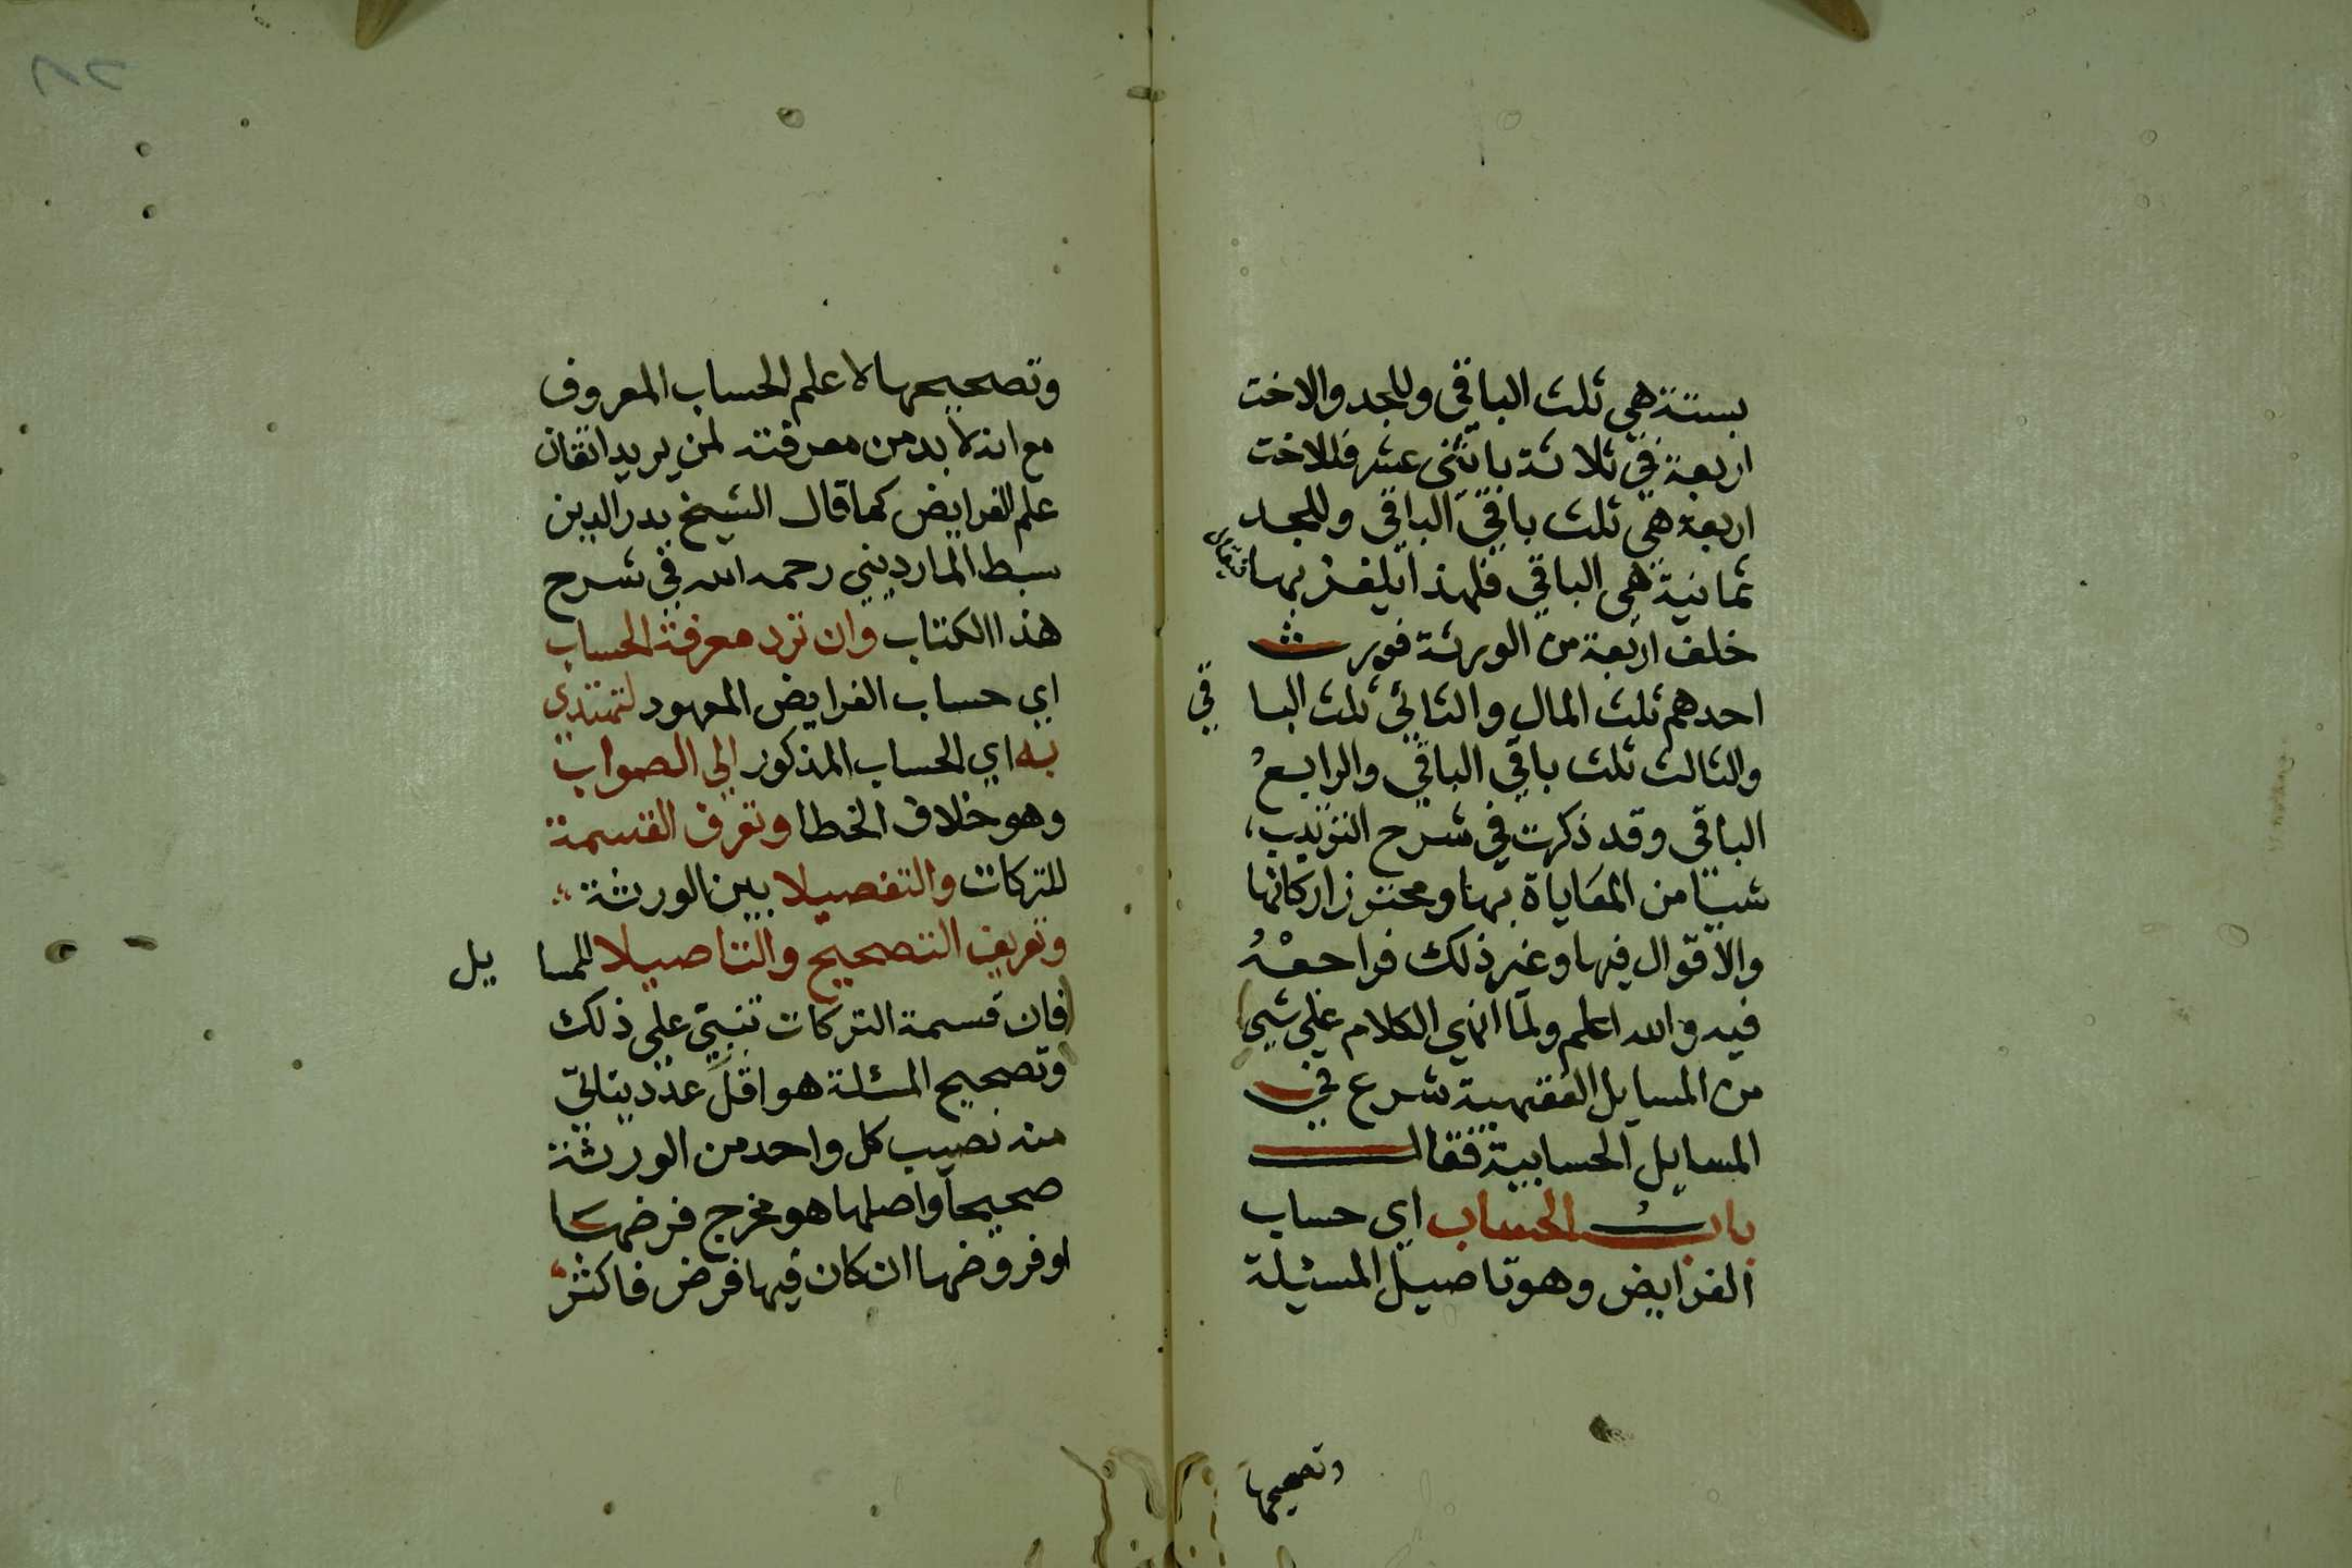 بستة هي ثلث الباقي وللجد والاخت
اربعة في ثلاثة باثني عشر فللاخت
اربعة هي ثلث باقي الباقي وللجد
ثمانية هي الباقي فلهذا يلغز بها فيقال
خلف اربعة من الورثة فورث
احدهم ثلث المال والثاني ثلث الباقي
والثالث ثلث باقي الباقي والرابع
الباقي وقد ذكرت في شرح الترتيب
شيا من المعاياة بها ومحترز اركانها
والاقوال فيها وغير ذلك فراجعه
فيه والله اعلم ولما انهي الكلام علي شيي
من المسايل الفقهية شرع في
المسايل الحسابية فقال
باب الحساب اي حساب
الفرايض وهو تاصيل المسئلة
وتصحيحها
وتصحيحها لا علم الحساب المعروف
مع انه لا بد من معرفته لمن يريد اتقان
علم الفرايض كما قال الشيخ بدر الدين
سبط المارديني رحمه الله في شرح
هذا الكتاب وان ترد معرفة الحساب
اي حساب الفرايض المعهود لتهتدي
به اي الحساب المذكور الي الصواب
وهو خلاف الخطا وتعرف القسمة
للتركات والتفصيلا بين الورثة
وتعريف التصحيح والتاصيلا للمسايل
فان قسمة التركات تنبني علي ذلك
وتصحيح المسئلة هو اقل عدد يتاتي
منه نصيب كل واحد من الورثة
صحيحا واصلها هو مخرج فرضها
او فروضها ان كان فيها فرض فاكثر